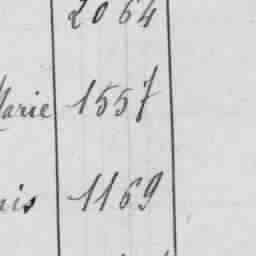 2064
Marie 1557
1169